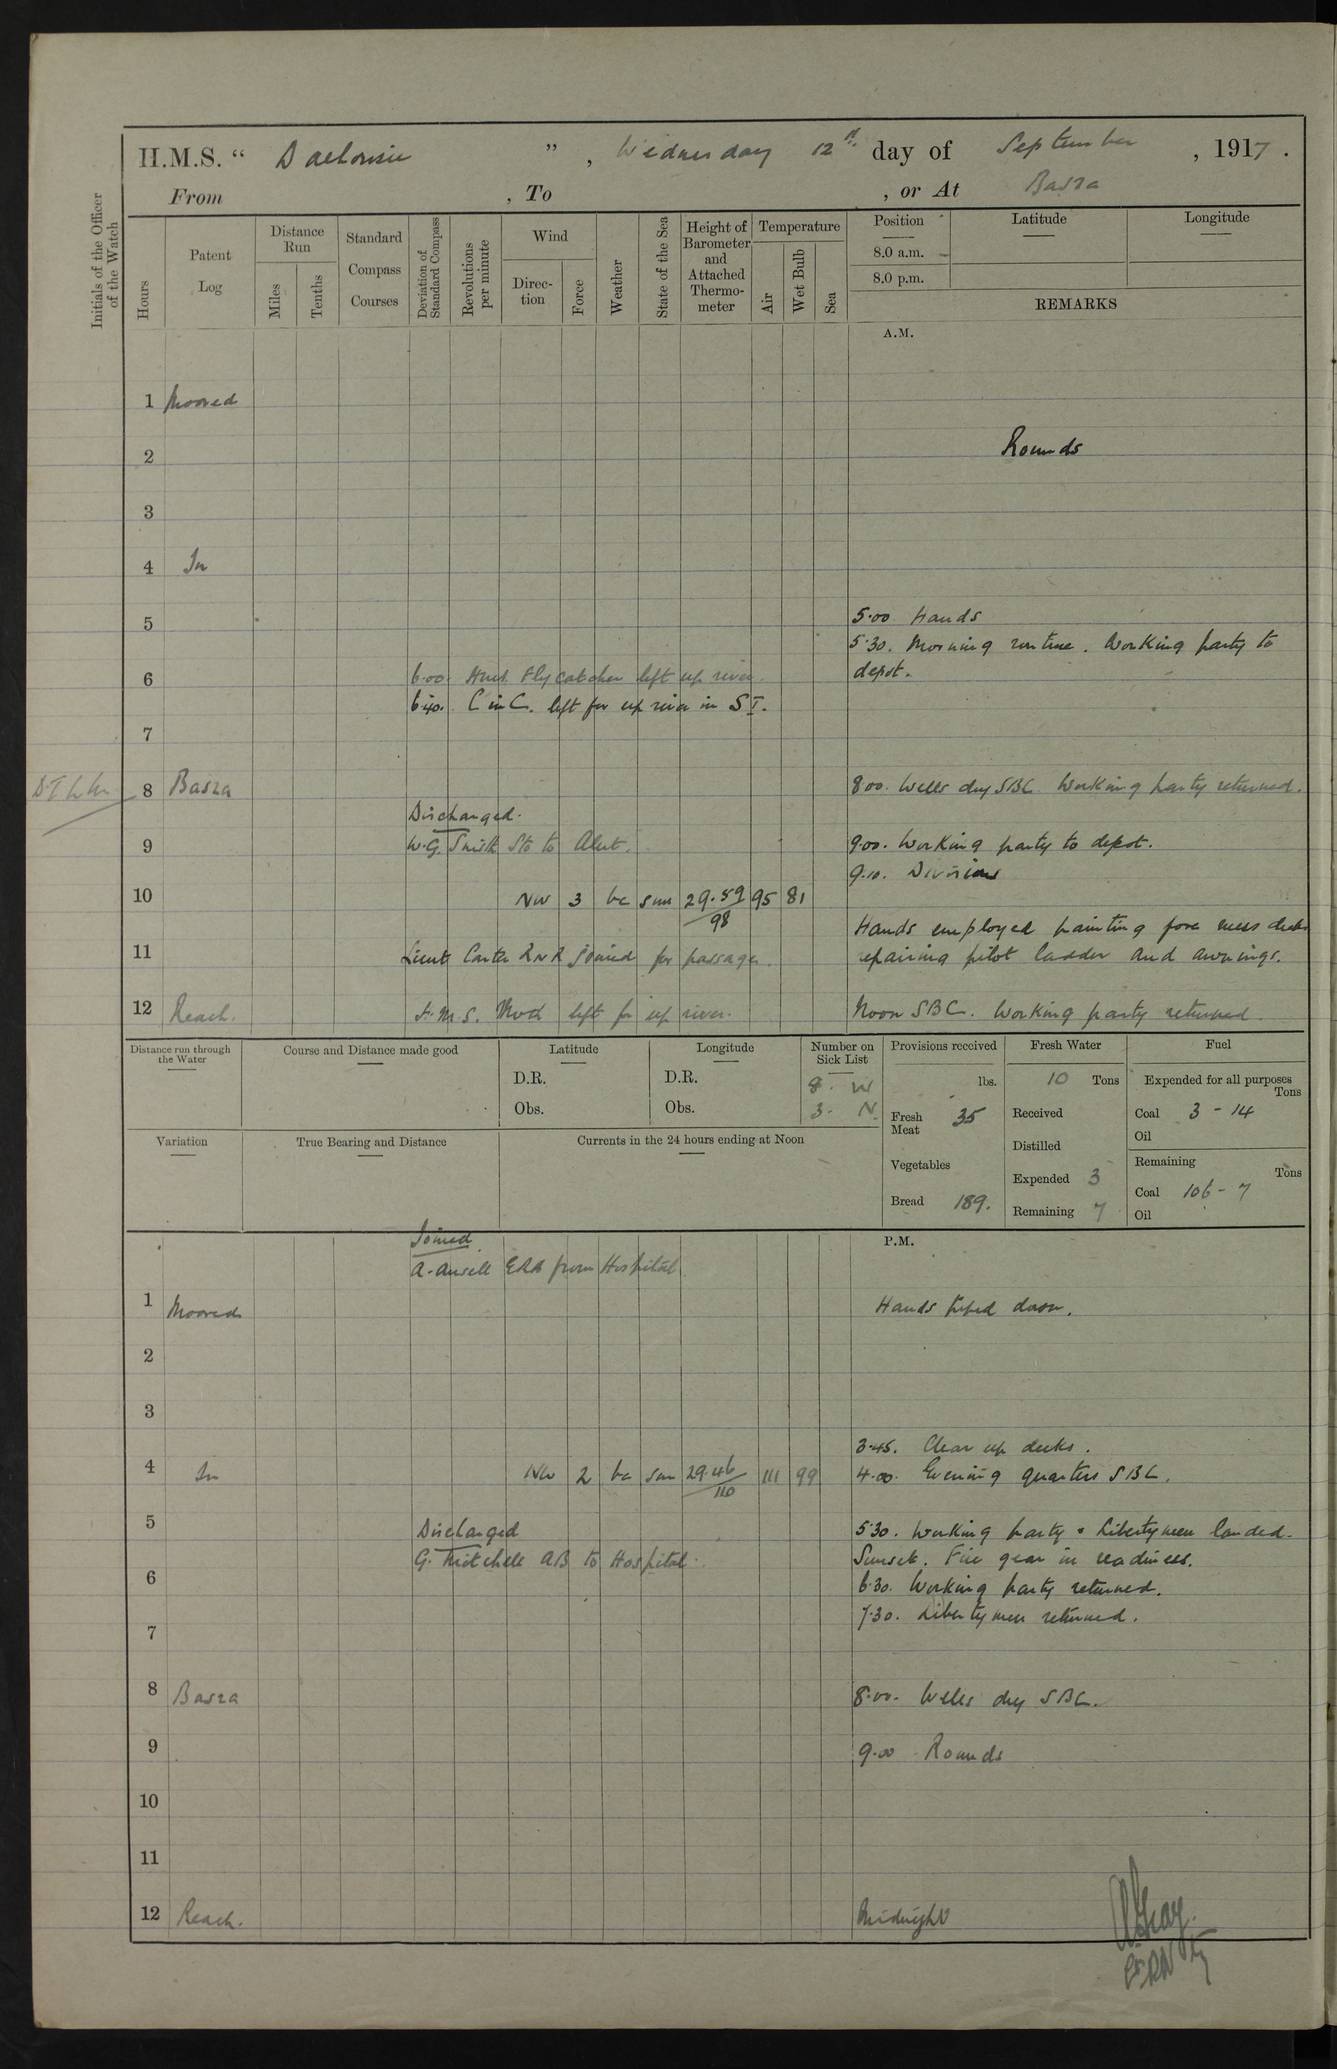 H.M.S. “ Dalhousie ” , Wednesday 12th day of September , 1917 .
From , To , or At Basra
Initials of the Officer of the Watch
Hours
Patent Log
Distance Run
Miles
Tenths
Standard Compass Courses
Deviation of Standard Compass
Revolutions per minute
Wind
Direction
Force
Weather
State of the Sea
Height of Barometer and Attached Thermometer
Temperature
Air
Wet Bulb
Sea
Position
8.0 a.m.
8.0 p.m.
Latitude
Longitude
REMARKS
A.M.
1 Moored
2 Rounds
3
4 In
5 5·00 Hands
5·30. Morning routine. Working party to
depot.
6 6·00. H.M.S. Flycatcher left up river.
6·40. C in C. left for up river in S I.
7
8 Basra 8·00. Wells dry SBC Working party returned.
Discharged.
9 W.G. Smith Sto to Alert. 9·00. Working party to depot.
9·10. Divisions
10 NW 3 bc sm 29.59/98 95 81
Hands employed painting fore mess decks
11 Lieut Carter RNR joined for passage. repairing pilot ladder and awnings.
12 Reach. H.M.S. Moth left for up river. Noon SBC. Working party returned.
Distance run through the Water
Course and Distance made good
Latitude
D.R.
Obs.
Longitude
D.R.
Obs.
Number on Sick List
8. W
3. N.
Provisions received
lbs.
Fresh Meat 35
Vegetables
Bread 189.
Fresh Water
10 Tons
Received
Distilled
Expended 3
Remaining 7
Fuel
Expended for all purposes
Tons
Coal 3 - 14
Oil
Remaining
Tons
Coal 106 - 7
Oil
Variation
True Bearing and Distance
Currents in the 24 hours ending at Noon
P.M.
Joined
A. Ansell ERA from Hospital
1 Moored Hands piped down.
2
3
3·45. Clear up decks.
4 In NW 2 bc sm 29.46/110 111 99 4·00. Evening quarters SBC.
5 Discharged 5·30. Working party & Libertymen landed.
G. Mitchell AB to Hospital. Sunset. Fire gear in readiness.
6 6·30. Working party returned.
7·30. Libertymen returned.
7
8 Basra 8·00. Wells dry SBC.
9 9·00 Rounds
10
11
12 Reach. Midnight
A Gray